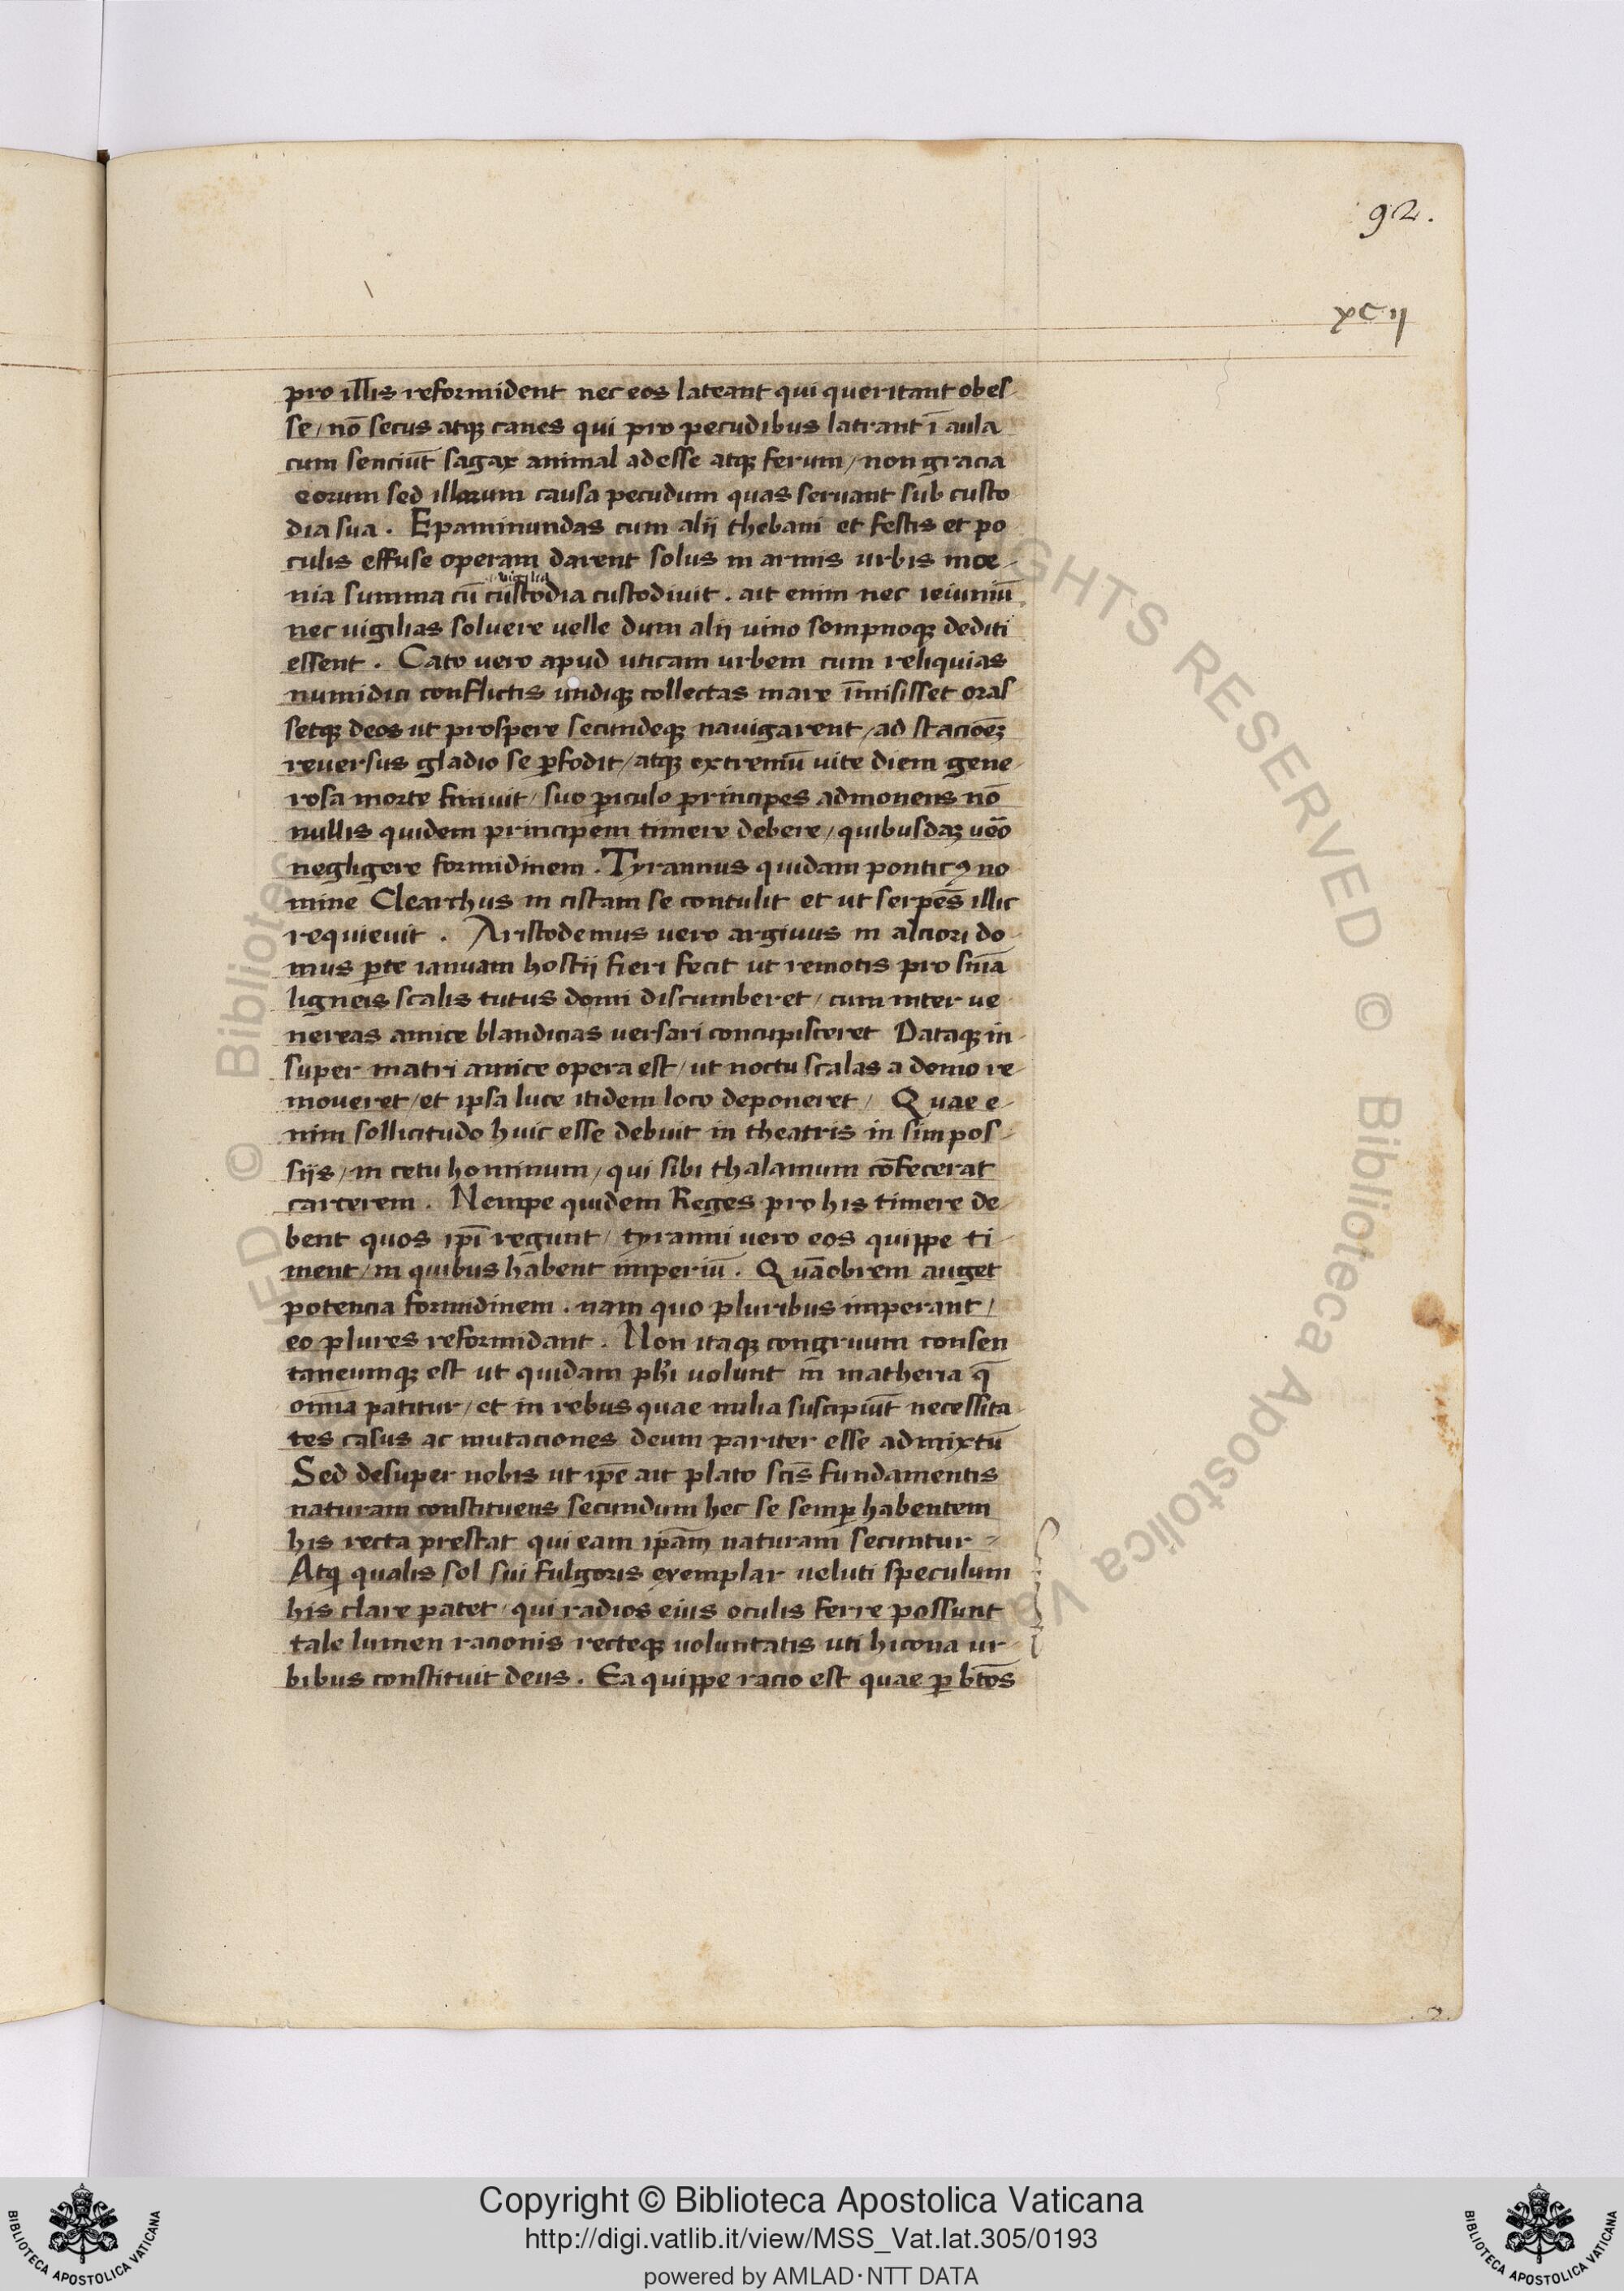 92.
xcij
pro illis reformident nec eos lateant qui queritant obes-
se / nō secus atq; canes qui pro pecudibus latrant ī aula
cum senciūt sagax animal adesse atq; ferum / non gracia
eorum sed illorum causa pecudum quas seruant sub custo
dia sua . Epaminundas cum alij thebani et festis et po
culis effuse operam darent solus in armis urbis moe-
vigilia
nia summa cū custodia custodivit . ait enim nec ieiuniū
nec uigilias soluere uelle dum alij uino sompnoq; dediti
essent . Cato vero apud uticam urbem cum reliquias
numidici conflictis undiq; collectas mare īmisisset oras-
setq; deos ut prospere secundeq; nauigarent / ad stacioēz
reuersus gladio se ꝑfodit / atq; extremū uite diem gene-
rosa morte finivit / suo ꝑiculo principes admonens nō
nullis quidem principem timere debere / quibusdaz uēo
negligere formidinem . Tyrannus quidam ponticꝰ no
mine Clearchus in cistam se contulit et ut serpēs illic
requievit . Aristodemus vero argivus in alciori do-
mus ꝑte ianuam hostij fieri fecit ut remotis pro sīnia
ligneis scalis tutus domi discumberet / cum inter ue-
nereas amice blandicias uersari concupisceret Dataq; in-
super matri amice opera est / ut noctu scalas a domo re-
moueret / et ipsa luce itidem loco deponeret / Quae e-
nim sollicitudo huic esse debuit in theatris in simpos-
sijs / in cetu hominum / qui sibi thalamum cōfecerat
carcerem . Nempe quidem Reges pro his timere de-
bent quos ip̄i regunt / tyranni uero eos quippe ti-
ment / in quibus habent imperiū . Quāobrem auget
potencia formidinem . nam quo pluribus imperant /
eo plures reformidant . Non itaq; congruum consen
taneumq; est ut quidam ph̄i uolunt in matheria q̄
om̄ia patitur / et in rebus quae milia suscipiūt necessita-
tes casus ac mutaciones deum pariter esse admixtū
Sed desuper nobis ut ip̄e ait plato sc̄is fundamentis
naturam constituens secundum hec se semꝑ habentem
his recta prestat qui eam ip̄am naturam secuntur -
Atq; qualis sol sui fulgoris exemplar ueluti speculum
his clare patet / qui radios eius oculis ferre possunt
tale lumen racionis recteq; uoluntatis uti hicona ur-
bibus constituit deus . Ea quippe racio est quae ꝑ b̄tos
2.
© Biblioteca Apostolica Vaticana
RIGHTS RESERVED
Copyright © Biblioteca Apostolica Vaticana
http://digi.vatlib.it/view/MSS_Vat.lat.305/0193
powered by AMLAD·NTT DATA
BIBLIOTECA APOSTOLICA VATICANA
BIBLIOTECA APOSTOLICA VATICANA